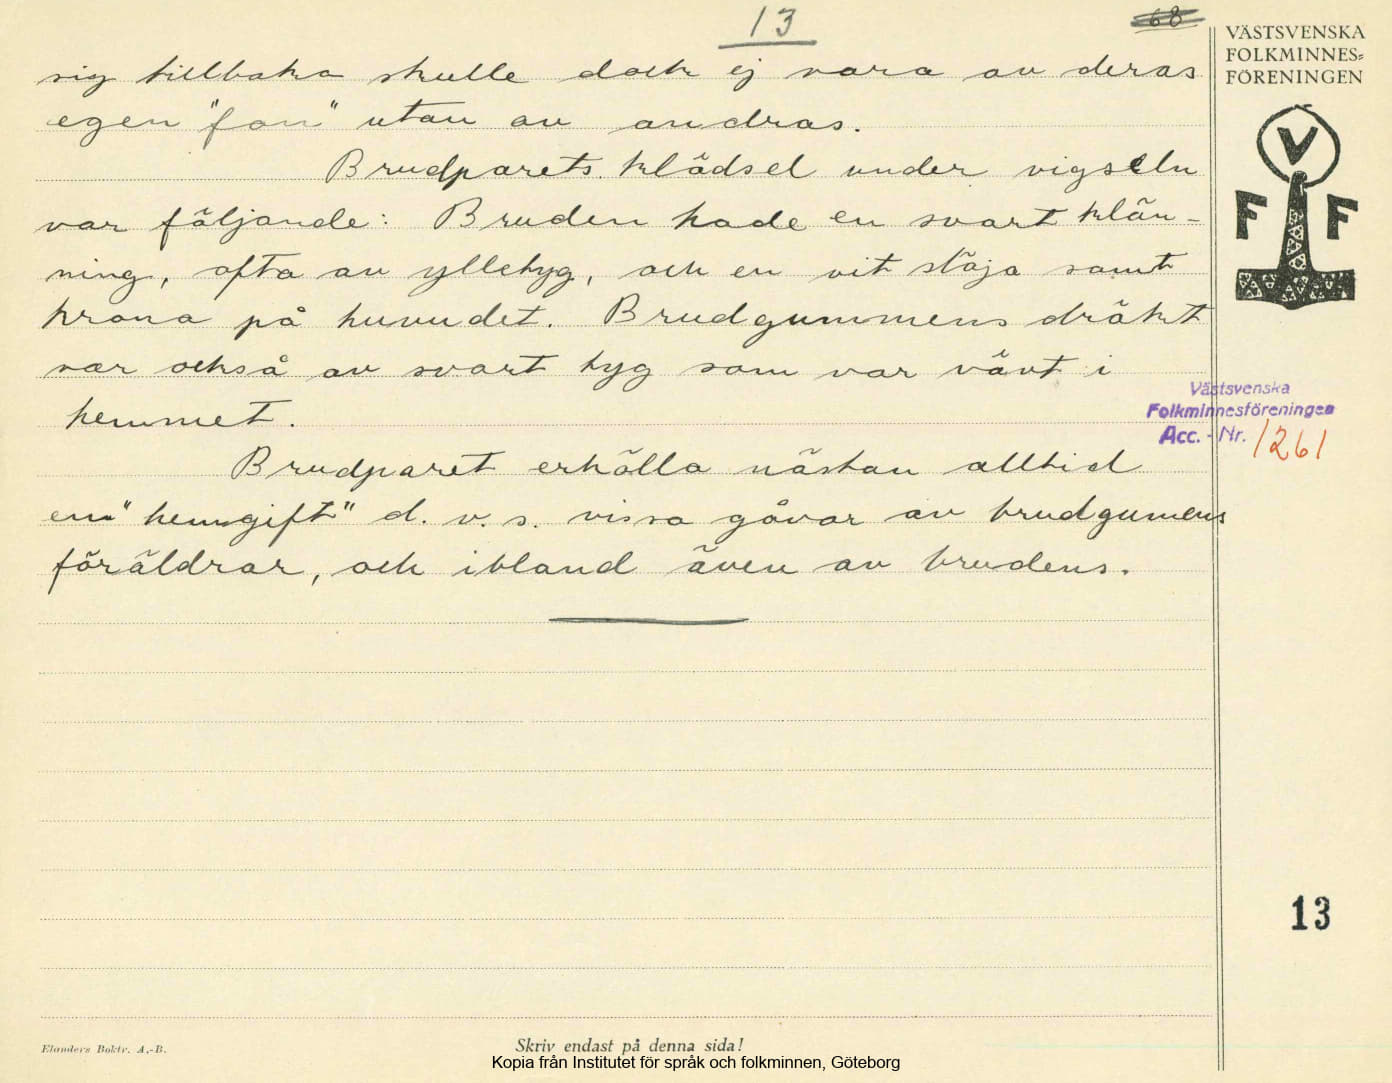 13
68
VÄSTSVENSKA
FOLKMINNES=
FÖRENINGEN
V
F F
sig tillbaka skulle dock ej vara av deras
egen "fon" utan av andras.
Brudparets klädsel under vigseln
var följande: Bruden hade en svart klän-
ning, ofta av ylletyg, och en vit slöja samt
krona på huvudet. Brudgummens dräkt
var också av svart tyg som var vävt i
hemmet.
Brudparet erhölla nästan alltid
en "hemgift" d. v. s. vissa gåvor av brudgumens
föräldrar, och ibland även av brudens.
Västsvenska
Folkminnesföreningen
Acc. - Nr. 1261
13
Elanders Boktr. A.-B.
Skriv endast på denna sida!
Kopia från Institutet för språk och folkminnen, Göteborg